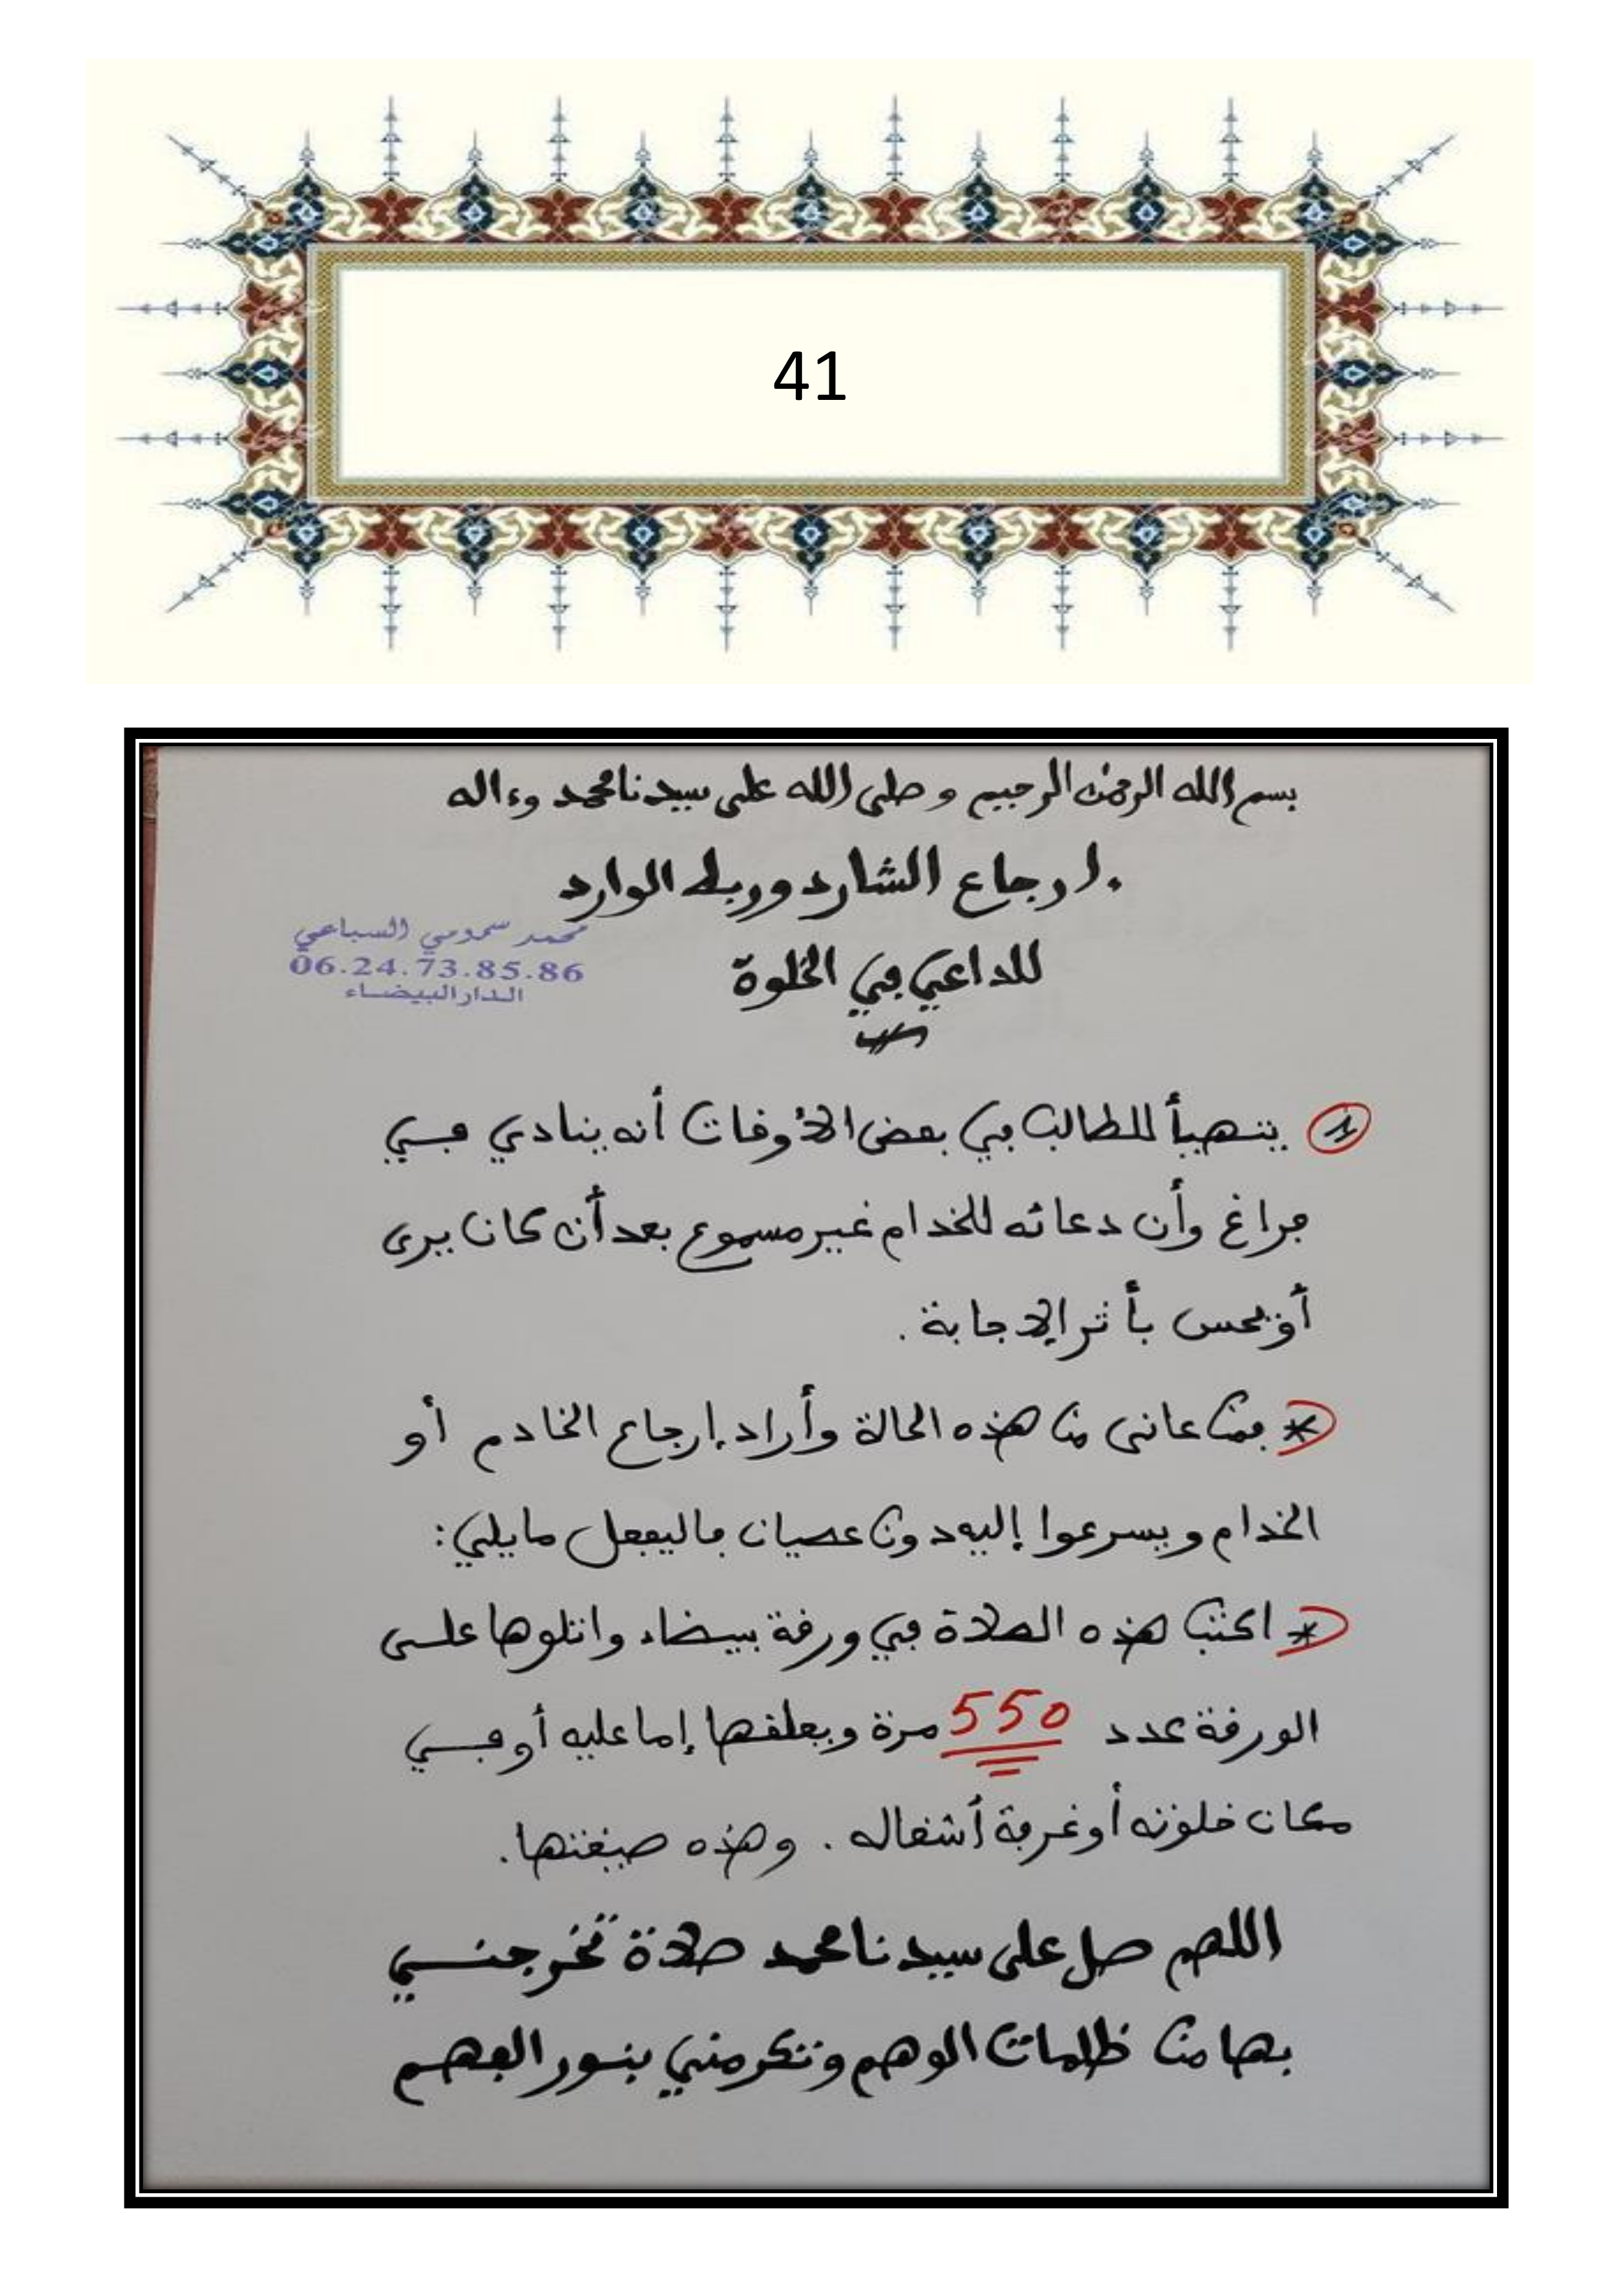 41
بسم الله الرحمن الرحيم وصلى الله على سيدنا محمد وءاله
.ارجاع الشارد وربط الوارد
محمد سمومي السباعي
06.24.73.85.86
الدار البيضاء
للداعي في الخلوة
1 يتهيأ للطالب في بعض الأوقات أنه ينادي في
فراغ وأن دعائه للخدام غير مسموع بعد أن كان يرى
أو يحس بأثر الإجابة .
* فمن عانى من هذه الحالة وأراد إرجاع الخادم أو
الخدام ويسرعوا إليه دون عصيان فاليفعل مايلي:
* اكتب هذه الصلاة في ورقة بيضاء واتلوها على
الورقة عدد 550 مرة ويعلقها إما عليه أو في
مكان خلوته أو غرفة أشغاله . وهذه صيغتها.
اللهم صل على سيدنا محمد صلاة تخرجني
بها من ظلمات الوهم وتكرمني بنور الفهم